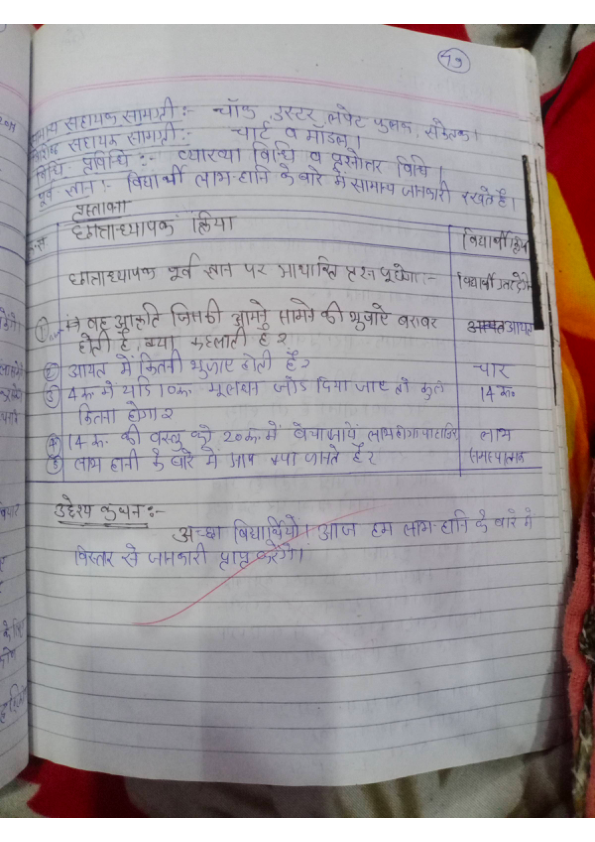 49
सामान्य सहायक सामाग्री :- चॉक, डस्टर, लपेट फलक, संकेतक।
विशेष सहायक सामाग्री :- चार्ट व मॉडल।
विधि-प्रविधि :- व्याख्या विधि व प्रश्नोत्तर विधि।
पूर्व ज्ञान :- विद्यार्थी लाभ-हानि के बारे में सामान्य जानकारी रखते है।
प्रस्तावना
छात्राध्यापक क्रिया
छात्राध्यापक पूर्व ज्ञान पर आधारित प्रश्न पूछेगा :-
① वह आकृति जिसकी आमने सामने की भुजाएं बराबर आयत
होती है, क्या कहलाती है?
② आयत में कितनी भुजाएं होती है? चार
③ 4 रू. में यदि 10 रू. मूलधन जोड दिया जाए तो कुल 14 रू०
कितना होगा?
④ 14 रू. की वस्तु को 20 रू. में बेचा जाये, लाभ होगा या हानि लाभ
⑤ लाभ हानी के बारे में आप क्या जानते है? समस्यात्मक
उद्देश्य कथन :-
अच्छा विद्यार्थियो। आज हम लाभ-हानि के बारे में
विस्तार से जानकारी प्राप्त करेंगे।